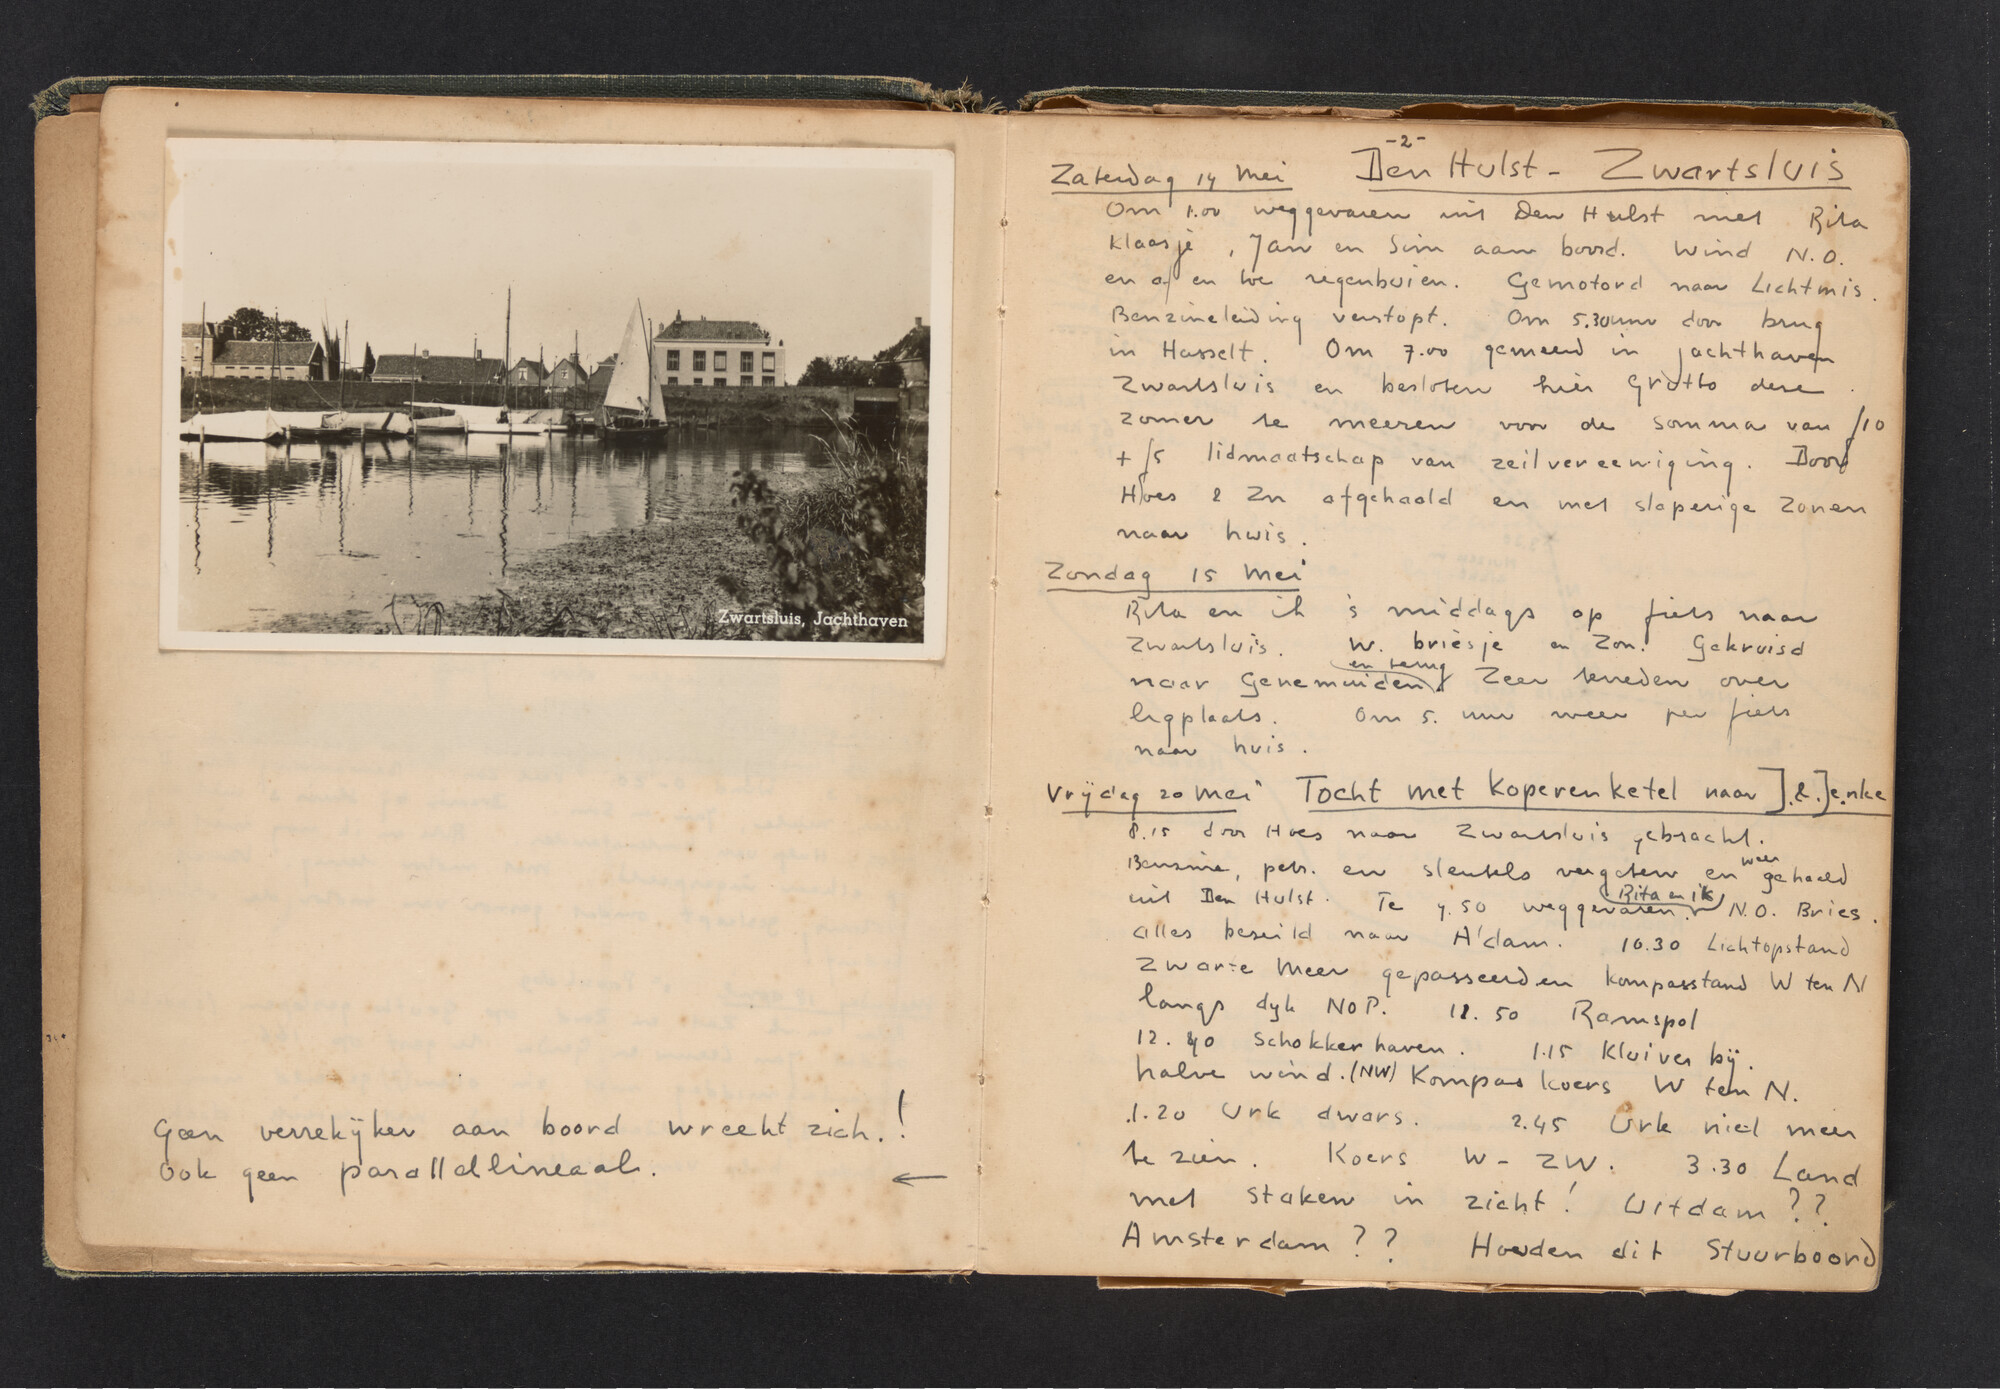 Zwartsluis, Jachthaven
Geen verrekijker aan boord wreekt zich.!
Ook geen parallellineaal.
←
-2-
Zaterdag 14 Mei Den Hulst - Zwartsluis
Om 1.00 weggevaren uit Den Hulst met Rita
Klaasje, Jan en Sim aan boord. Wind N.O.
en af en toe regenbuien. Gemotord naar Lichtmis.
Benzineleiding verstopt. Om 5.30 uur door brug
in Hasselt. Om 7.00 gemeerd in jachthaven
Zwartsluis en besloten hier Grotto deze
zomer te meeren voor de somma van ƒ10
+ ƒ5 lidmaatschap van zeilvereeniging. Door
Hoes & Zn afgehaald en met slaperige zonen
naar huis.
Zondag 15 Mei
Rita en ik 's middags op fiets naar
Zwartsluis. W. briesje en Zon. Gekruisd
naar Genemuiden en terug. Zeer tevreden over
ligplaats. Om 5. uur weer per fiets
naar huis.
Vrijdag 20 Mei Tocht met Koperenketel naar J.&.Jenke
8.15 door Hoes naar Zwartsluis gebracht.
Benzine, petr. en sleutels vergeten en weer gehaald
uit Den Hulst. Te 9.50 weggevaren. Rita en ik N.O. Bries.
alles bezeild naar A'dam. 10.30 Lichtopstand
Zwarte Meer gepasseerd en kompasstand W ten N
langs dijk NOP. 11.50 Ramspol
12.40 Schokkerhaven. 1.15 Kluiver bij.
halve wind. (NW) Kompas koers W ten N.
1.20 Urk dwars. 2.45 Urk niet meer
te zien. Koers W - ZW. 3.30 Land
met staken in zicht! Uitdam??
Amsterdam?? Houden dit Stuurboord